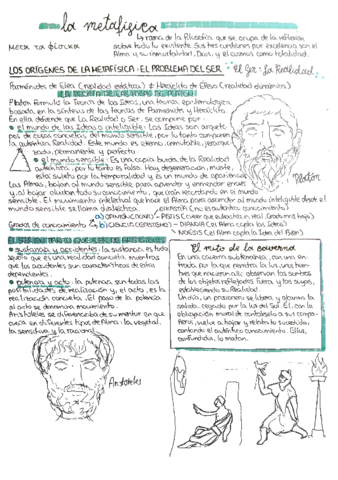 la metafísica
μετα τα φίσικα
La rama de la Filosofía que se ocupa de la reflexión
sobre todo lo existente. Sus tres cuestiones por excelencia son el
Alma y su inmortalidad, Dios, y el cosmos como totalidad.
LOS ORÍGENES DE LA METAFÍSICA: EL PROBLEMA DEL SER. El Ser: La Realidad
Parménides de Elea (realidad estática) ≠ Heráclito de Éfeso (realidad dinámica)
Platón formula la Teoría de las Ideas, una teoría epistemológica
basada, en la síntesis de las teorías de Parménides y Heráclito.
En ella defiende que la Realidad o Ser, se compone por:
• el mundo de las Ideas o inteligible: Las Ideas son arqueti-
pos de cosas concretas del mundo sensible, por lo tanto componen
la auténtica Realidad. Este mundo es eterno, inmutable, jerarqui-
zado, homogéneo y perfecto.
• el mundo sensible: Es una copia burda de la Realidad
auténtica, por lo tanto es falsa. Hay degeneración y muerte,
estás sujeto por la temporalidad y es un mundo de apariencias
Platón
Las Almas, bajan al mundo sensible para aprender y enmendar errores
y, al bajar olvidan todo su conocimiento, que irán recordando en el mundo
sensible. El movimiento intelectual que hace el Alma para ascender al mundo inteligible desde el
mundo sensible se llama dialéctica.
Grados de conocimiento
a) OPINIÓN (DOXA)
b) CIENCIA (EPISTEME)
• sustancia y accidentes: la sustancia es todo
aquello que es una realidad concreta, mientras
que los accidentes son características de ellas
dependientes.
• potencia y acto: la potencia son todas las
posibilidades de realización y, el acto, es la
realización concreta. El paso de la potencia
al acto se denomina movimiento.
Aristóteles se diferenciaba de su mentor en que
creía en diferentes tipos de Alma: la vegetal,
la sensitiva y la racional.
El mito de la caverna
En una caverna subterránea, con una en-
trada por la que penetra la luz, unos hom-
bres que nacieron allí, observan las sombras
de los objetos reflejados fuera, y las suyas,
estableciendo su Realidad.
Un día, un prisionero se libera y alcanza la
salida, cegado por la luz del Sol. Él, con la
obligación moral de contárselo a sus compa-
ñeros, vuelve a bajar y relata lo sucedido,
contando el auténtico conocimiento. Ellos,
confundidos, lo matan.
Aristóteles